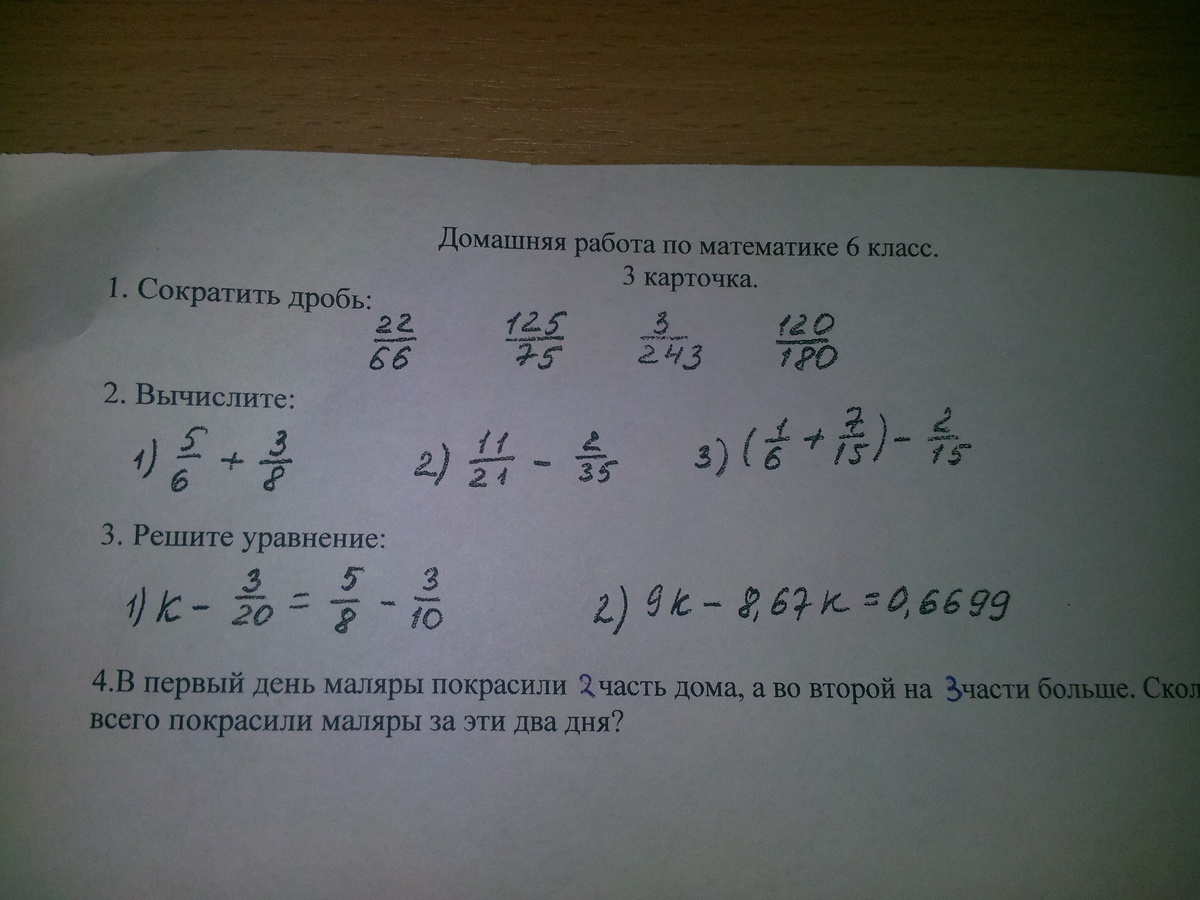 Домашняя работа по математике 6 класс.
3 карточка.
1. Сократить дробь:
22/66 125/75 3/243 120/180
2. Вычислите:
1) 5/6 + 3/8 2) 11/21 - 2/35 3) (1/6 + 7/15) - 2/15
3. Решите уравнение:
1) к - 3/20 = 5/8 - 3/10 2) 9к - 8,67к = 0,6699
4.В первый день маляры покрасили 2 часть дома, а во второй на 3 части больше.
всего покрасили маляры за эти два дня?